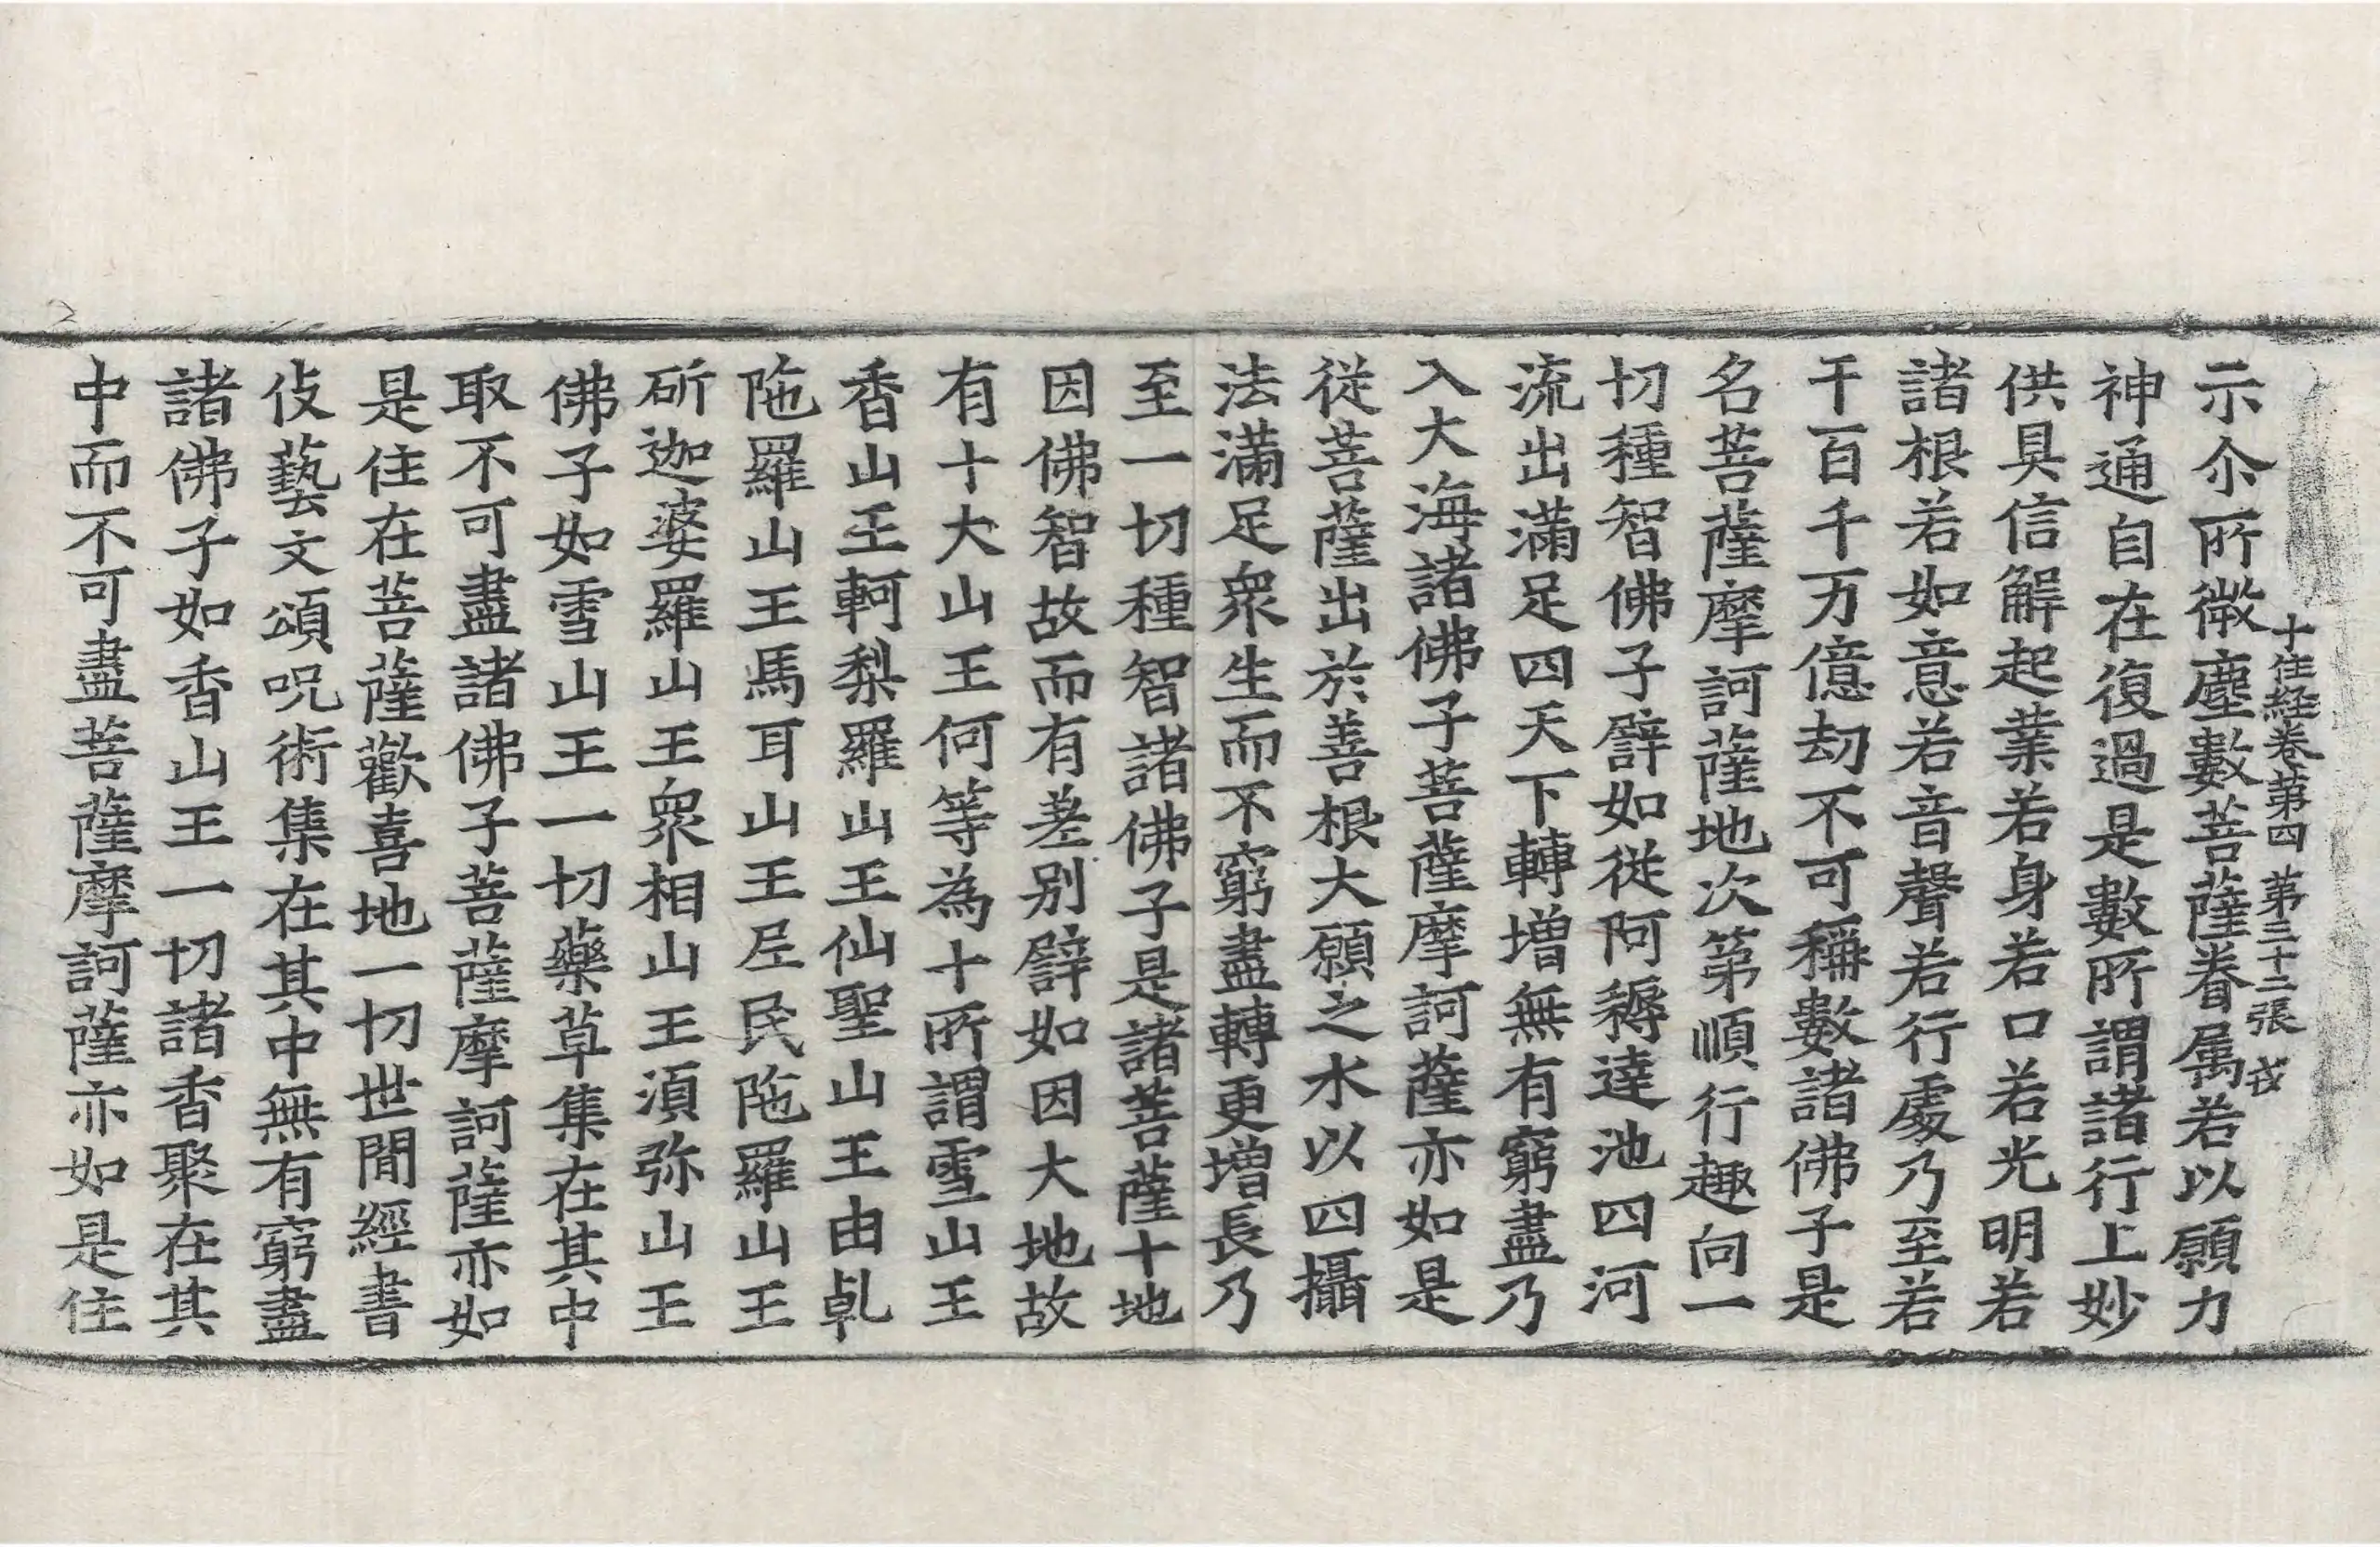 十住経卷第四 第三十二張 𢦙
示尒所微塵數菩薩眷属若以願力
神通自在復過是數所謂諸行上妙
供具信解起業若身若口若光明若
諸根若如意若音聲若行處乃至若
干百千万億劫不可稱數諸佛子是
名菩薩摩訶薩地次第順行趣向一
切種智佛子譬如從阿耨達池四河
流出滿足四天下轉增無有窮盡乃
入大海諸佛子菩薩摩訶薩亦如是
從菩薩出於善根大願之水以四攝
法滿足衆生而不窮盡轉更增長乃
至一切種智諸佛子是諸菩薩十地
因佛智故而有差别譬如因大地故
有十大山王何等為十所謂雪山王
香山王軻梨羅山王仙聖山王由乹
陁羅山王馬耳山王尼民陁羅山王
斫迦婆羅山王衆相山王須弥山王
佛子如雪山王一切藥草集在其中
取不可盡諸佛子菩薩摩訶薩亦如
是住在菩薩歡喜地一切世間經書
伎藝文頌呪術集在其中無有窮盡
諸佛子如香山王一切諸香聚在其
中而不可盡菩薩摩訶薩亦如是住